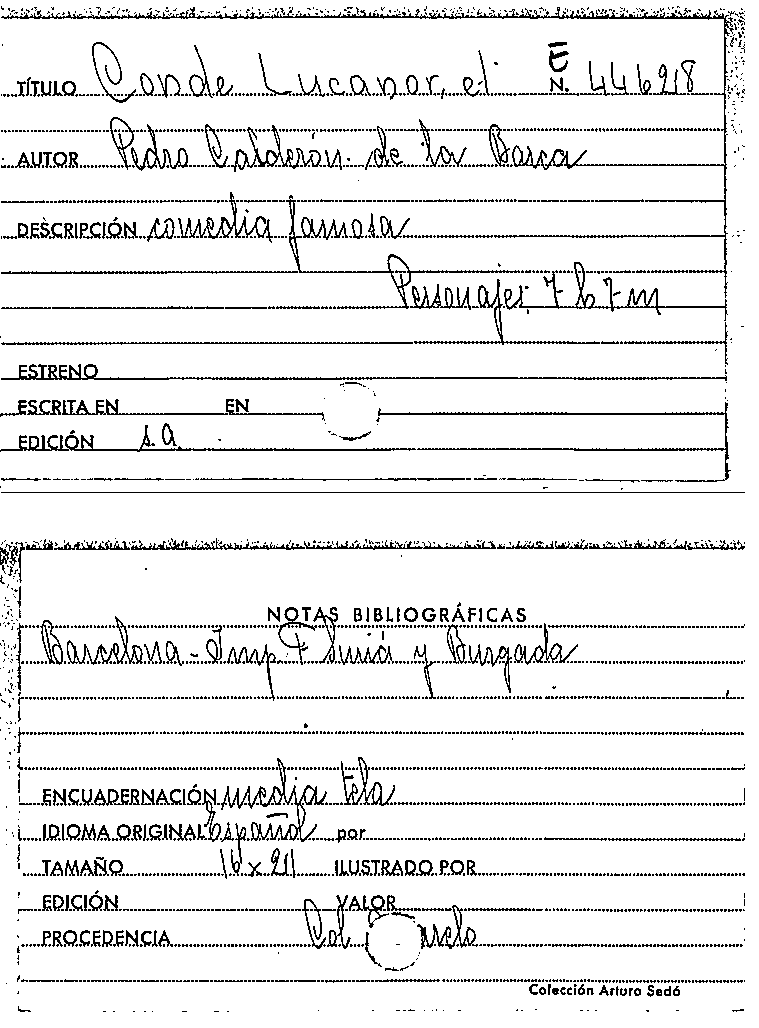 TÍTULO Conde Lucanor, el E N. 44628
AUTOR Pedro Calderón de la Barca
DESCRIPCIÓN comedia famosa
Personajes, 7 h 7 m
ESTRENO
ESCRITA EN EN
EDICIÓN s.a.
NOTAS BIBLIOGRÁFICAS
Barcelona - Imp F Suriá y Burgada
ENCUADERNACIÓN media tela
IDIOMA ORIGINAL Español por
TAMAÑO 16 x 211 ILUSTRADO POR
EDICIÓN VALOR
PROCEDENCIA Col
Colección Arturo Sedó